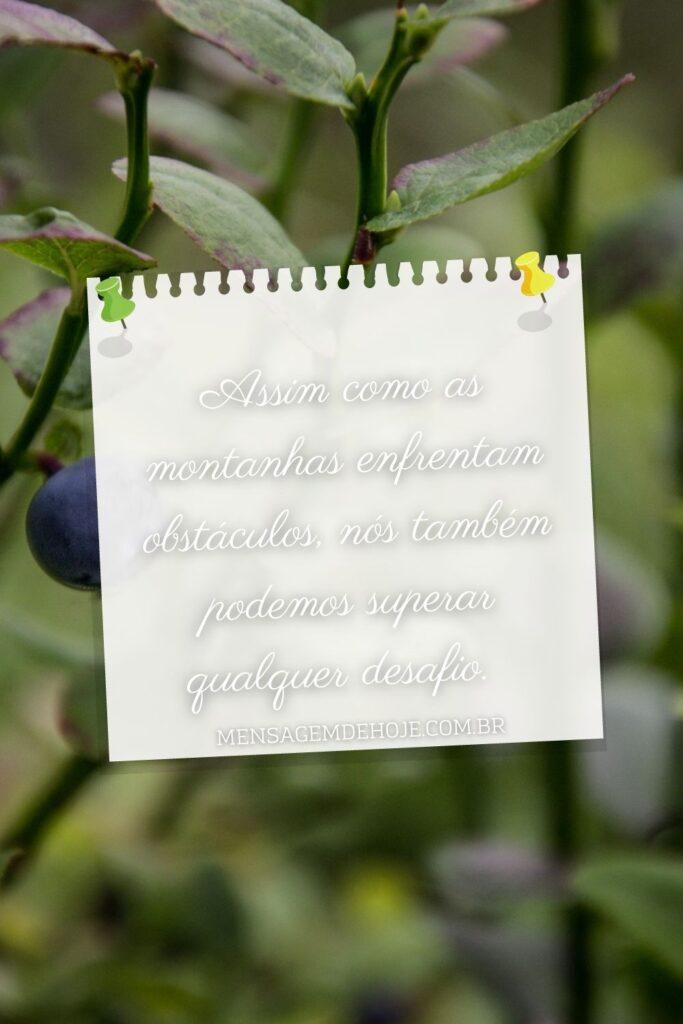 Assim como as
montanhas enfrentam
obstáculos, nós também
podemos superar
qualquer desafio.
MENSAGEMDEHOJE.COM.BR